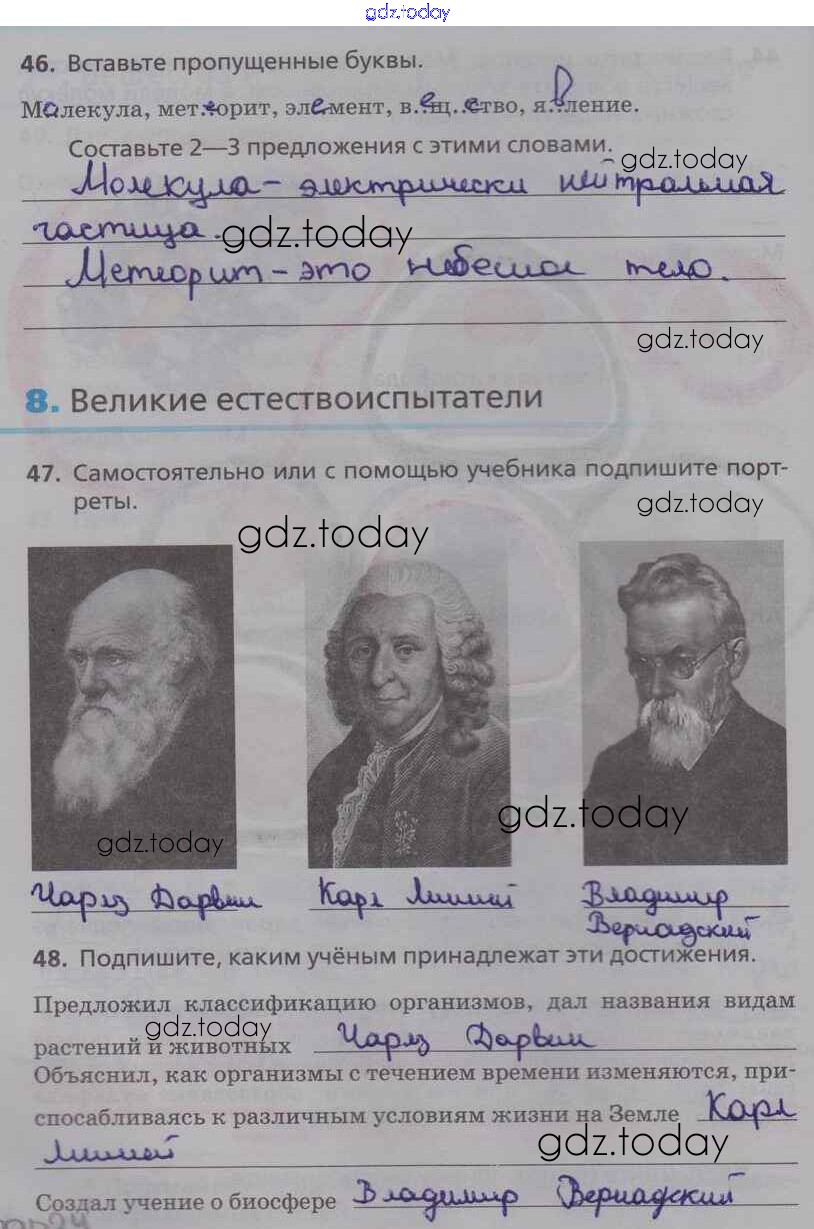 gdz.today
46. Вставьте пропущенные буквы.
Молекула, метеорит, элемент, вещество, явление.
Составьте 2—3 предложения с этими словами.
gdz.today
Молекула - электрически нейтральная
частица.
gdz.today
Метеорит - это небесное тело.
gdz.today
8. Великие естествоиспытатели
47. Самостоятельно или с помощью учебника подпишите порт-
реты.
gdz.today
gdz.today
gdz.today
gdz.today
Чарлз Дарвин Карл Линней Владимир
Вернадский
48. Подпишите, каким учёным принадлежат эти достижения.
Предложил классификацию организмов, дал названия видам
gdz.today
растений и животных Чарлз Дарвин
Объяснил, как организмы с течением времени изменяются, при-
спосабливаясь к различным условиям жизни на Земле Карл
gdz.today
Линней
Создал учение о биосфере Владимир Вернадский